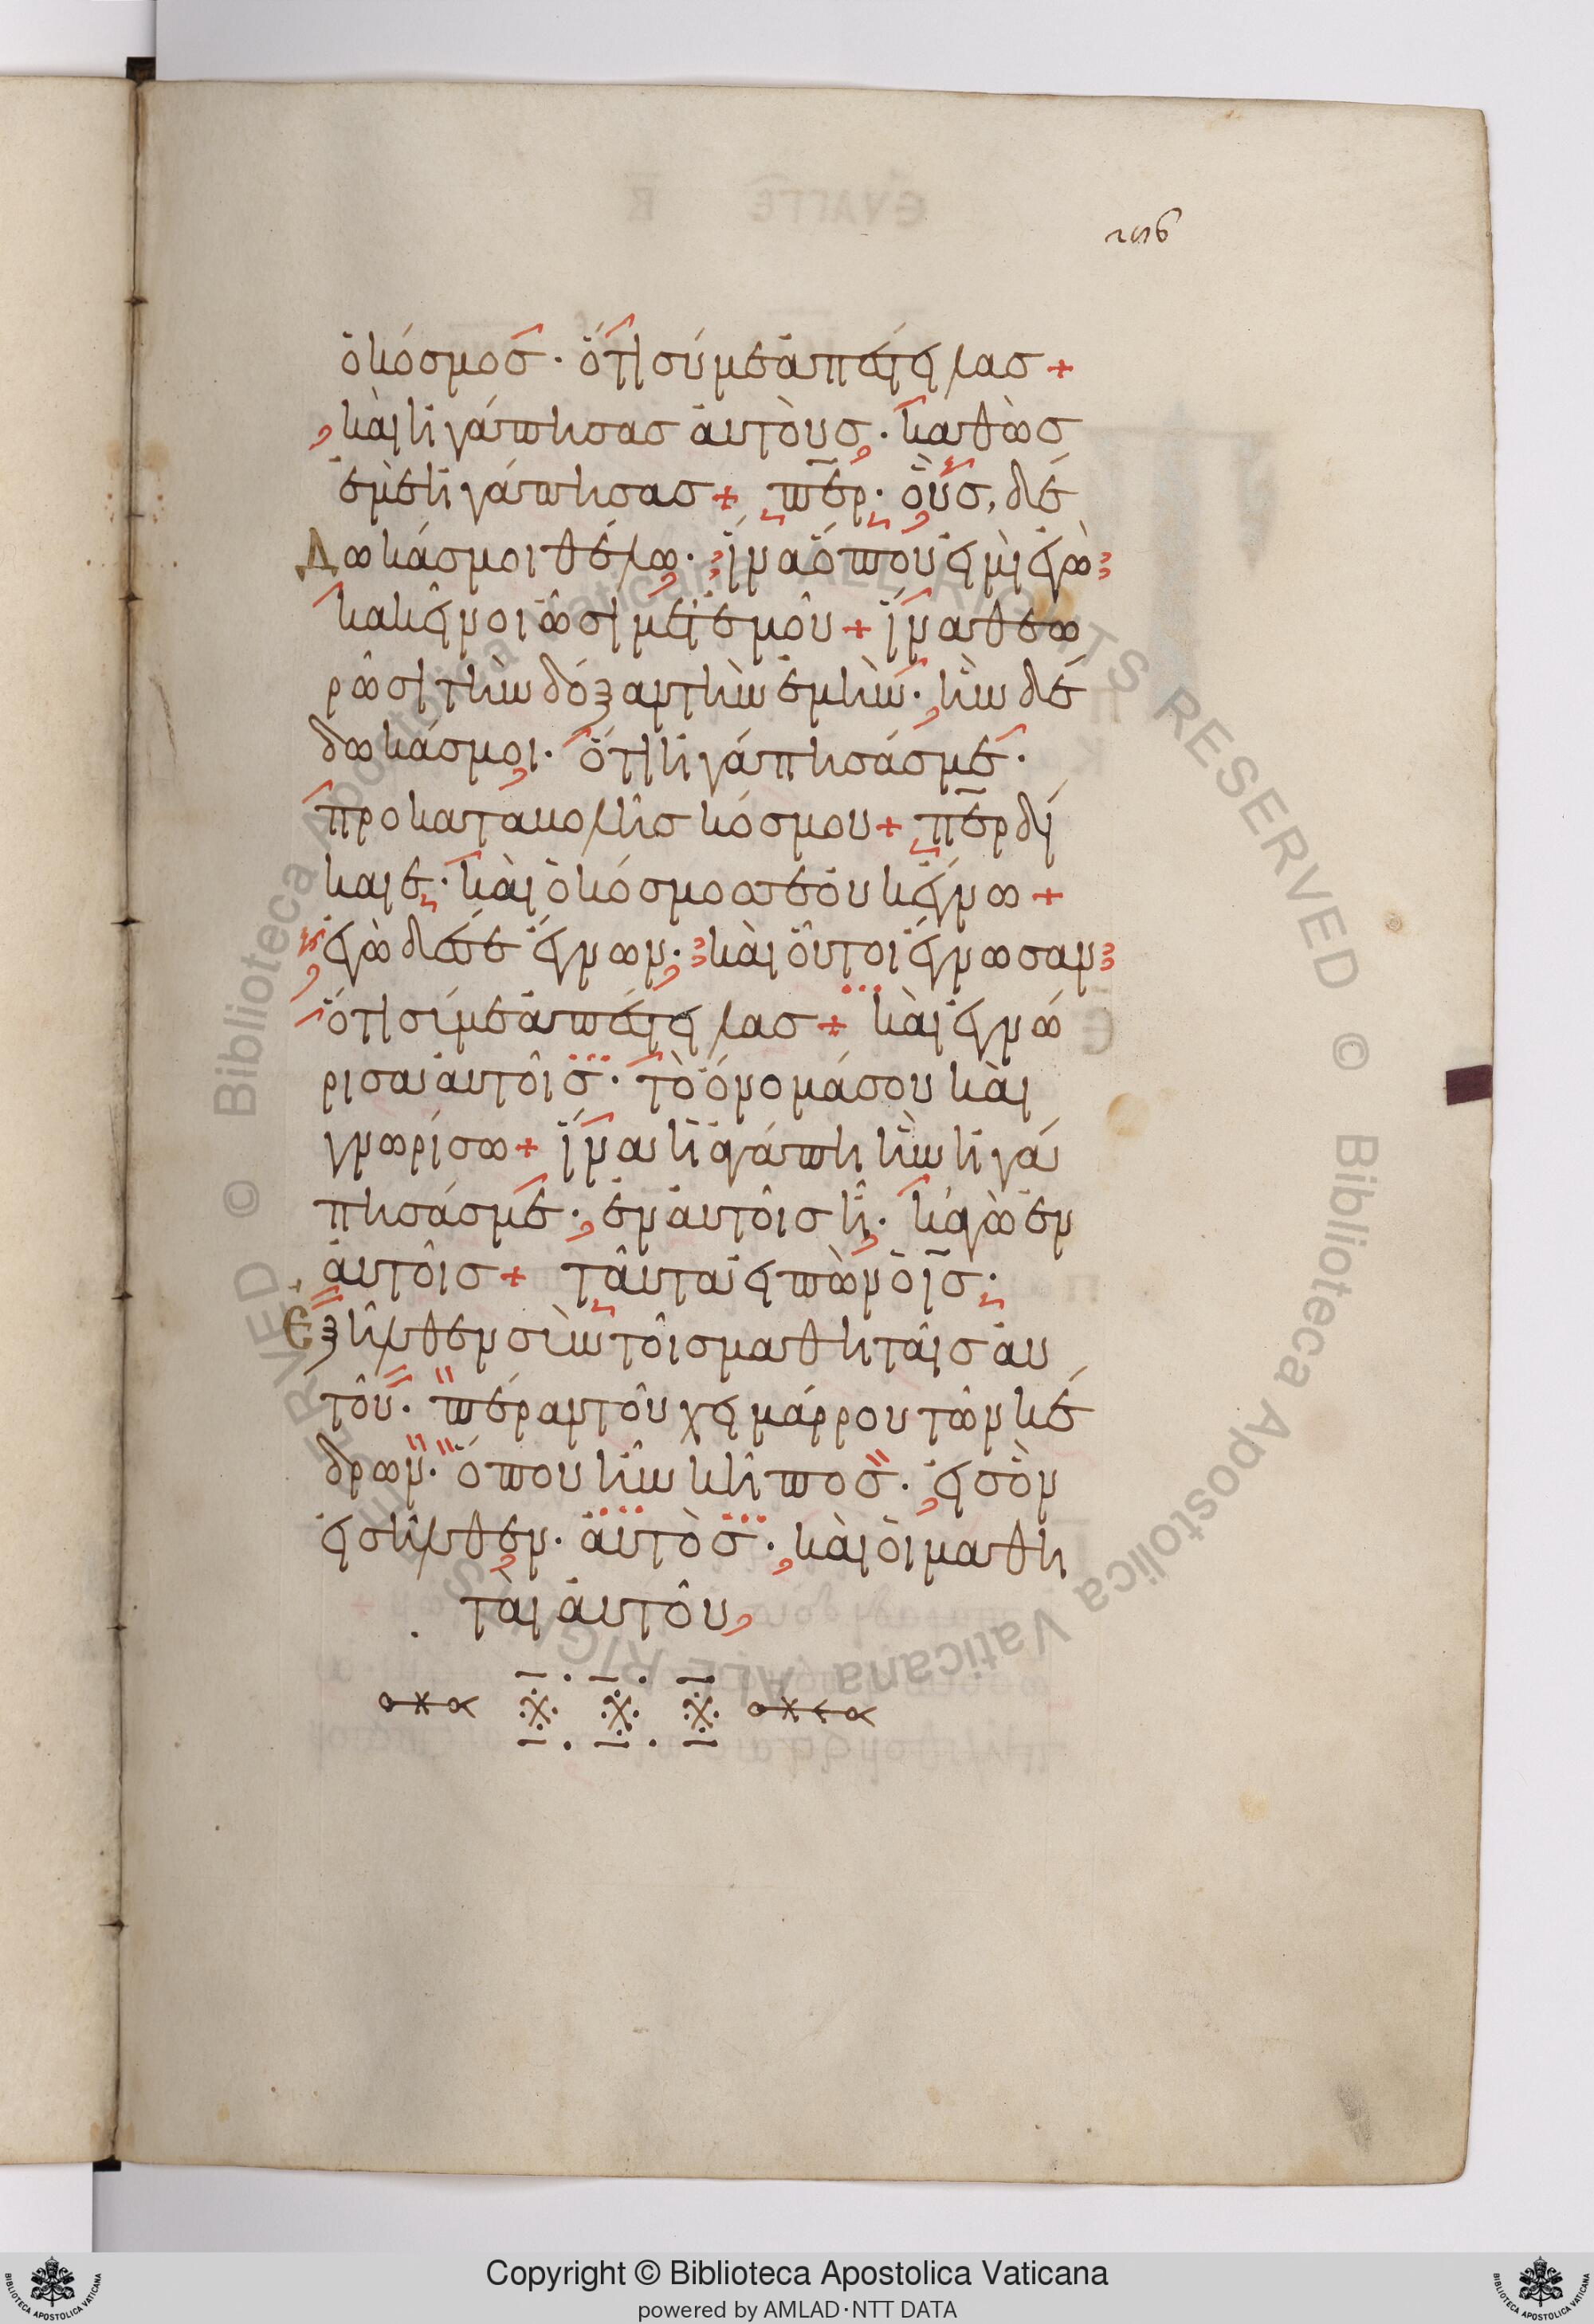 206
ὁ κόσμος· ὅτι σύ με ἀπέστειλας +
καὶ ἠγάπησας αὐτοὺς· καθὼς
ἐμὲ ἠγάπησας + περ· οὓς δέ
δωκάς μοι θέλω· ἵνα ὅπου εἰμὶ ἐγὼ
κακεῖνοι ὦσι μετ' ἐμοῦ + ἵνα θεω
ρῶσι τὴν δόξαν τὴν ἐμὴν· ἣν δέ
δωκάς μοι· ὅτι ἠγάπησάς με·
προ καταβολῆς κόσμου + περ δί
καιε· καὶ ὁ κόσμος σε οὐκ ἔγνω +
ἐγὼ δέ σε ἔγνων· καὶ οὗτοι ἔγνωσαν
ὅτι σύ με ἀπέστειλας + καὶ ἐγνώ
ρισα αὐτοῖς· τὸ ὄνομά σου καὶ
γνωρίσω + ἵνα ἡ ἀγάπη ἣν ἠγά
πησάς με· ἐν αὐτοῖς ἦ· κἀγὼ ἐν
αὐτοῖς + ταῦτα εἰπὼν ὁ ις·
Ἐξῆλθεν σὺν τοῖς μαθηταῖς αὐ
τοῦ· πέραν τοῦ χειμάρρου τῶν κέ
δρων· ὅπου ἦν κῆπος· εἰς ὃν
εἰσῆλθεν· αὐτὸς· καὶ οἱ μαθη
ταὶ αὐτοῦ,
Copyright © Biblioteca Apostolica Vaticana
powered by AMLAD·NTT DATA